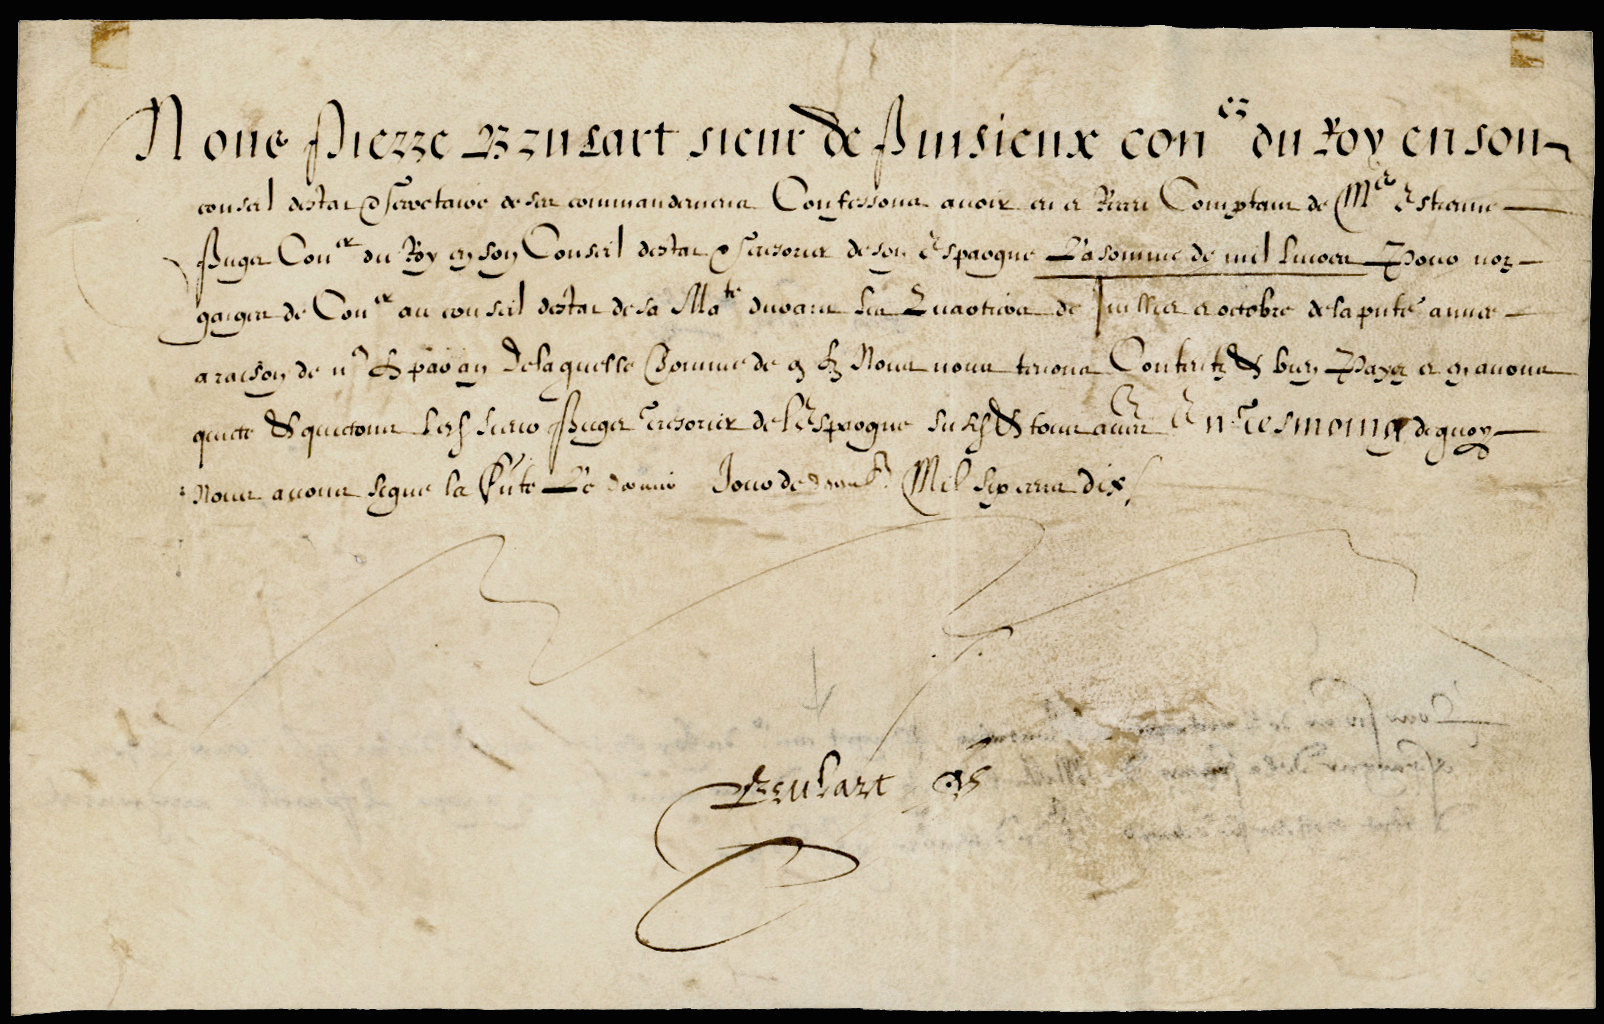 Nous Pierre Brulart sieur de Puisieux con.er du Roy en son
conseil destat & secretaire de ses commandemens Confessons avoir eu et Receu Comptant de M.e Estienne
Puget Con.er du Roy en son Conseil destat & tresorier de son Espargne La somme de mil livres Pour noz
gaiges de Con.er au conseil destat de sa Ma.te durant les Quartiers de Juillet et octobre de la pnte annee
a raison de ii.m # par an De laquelle Somme de m # Nous nous tenons Contentz & bien Payez et en avons
quicte & quictons led sieur Puget Tresorier de l'Espargne susd & tous au.es En Tesmoing de quoy
Nous avons signe la Pnte Le Jour de Mil six cens dix
Brulart